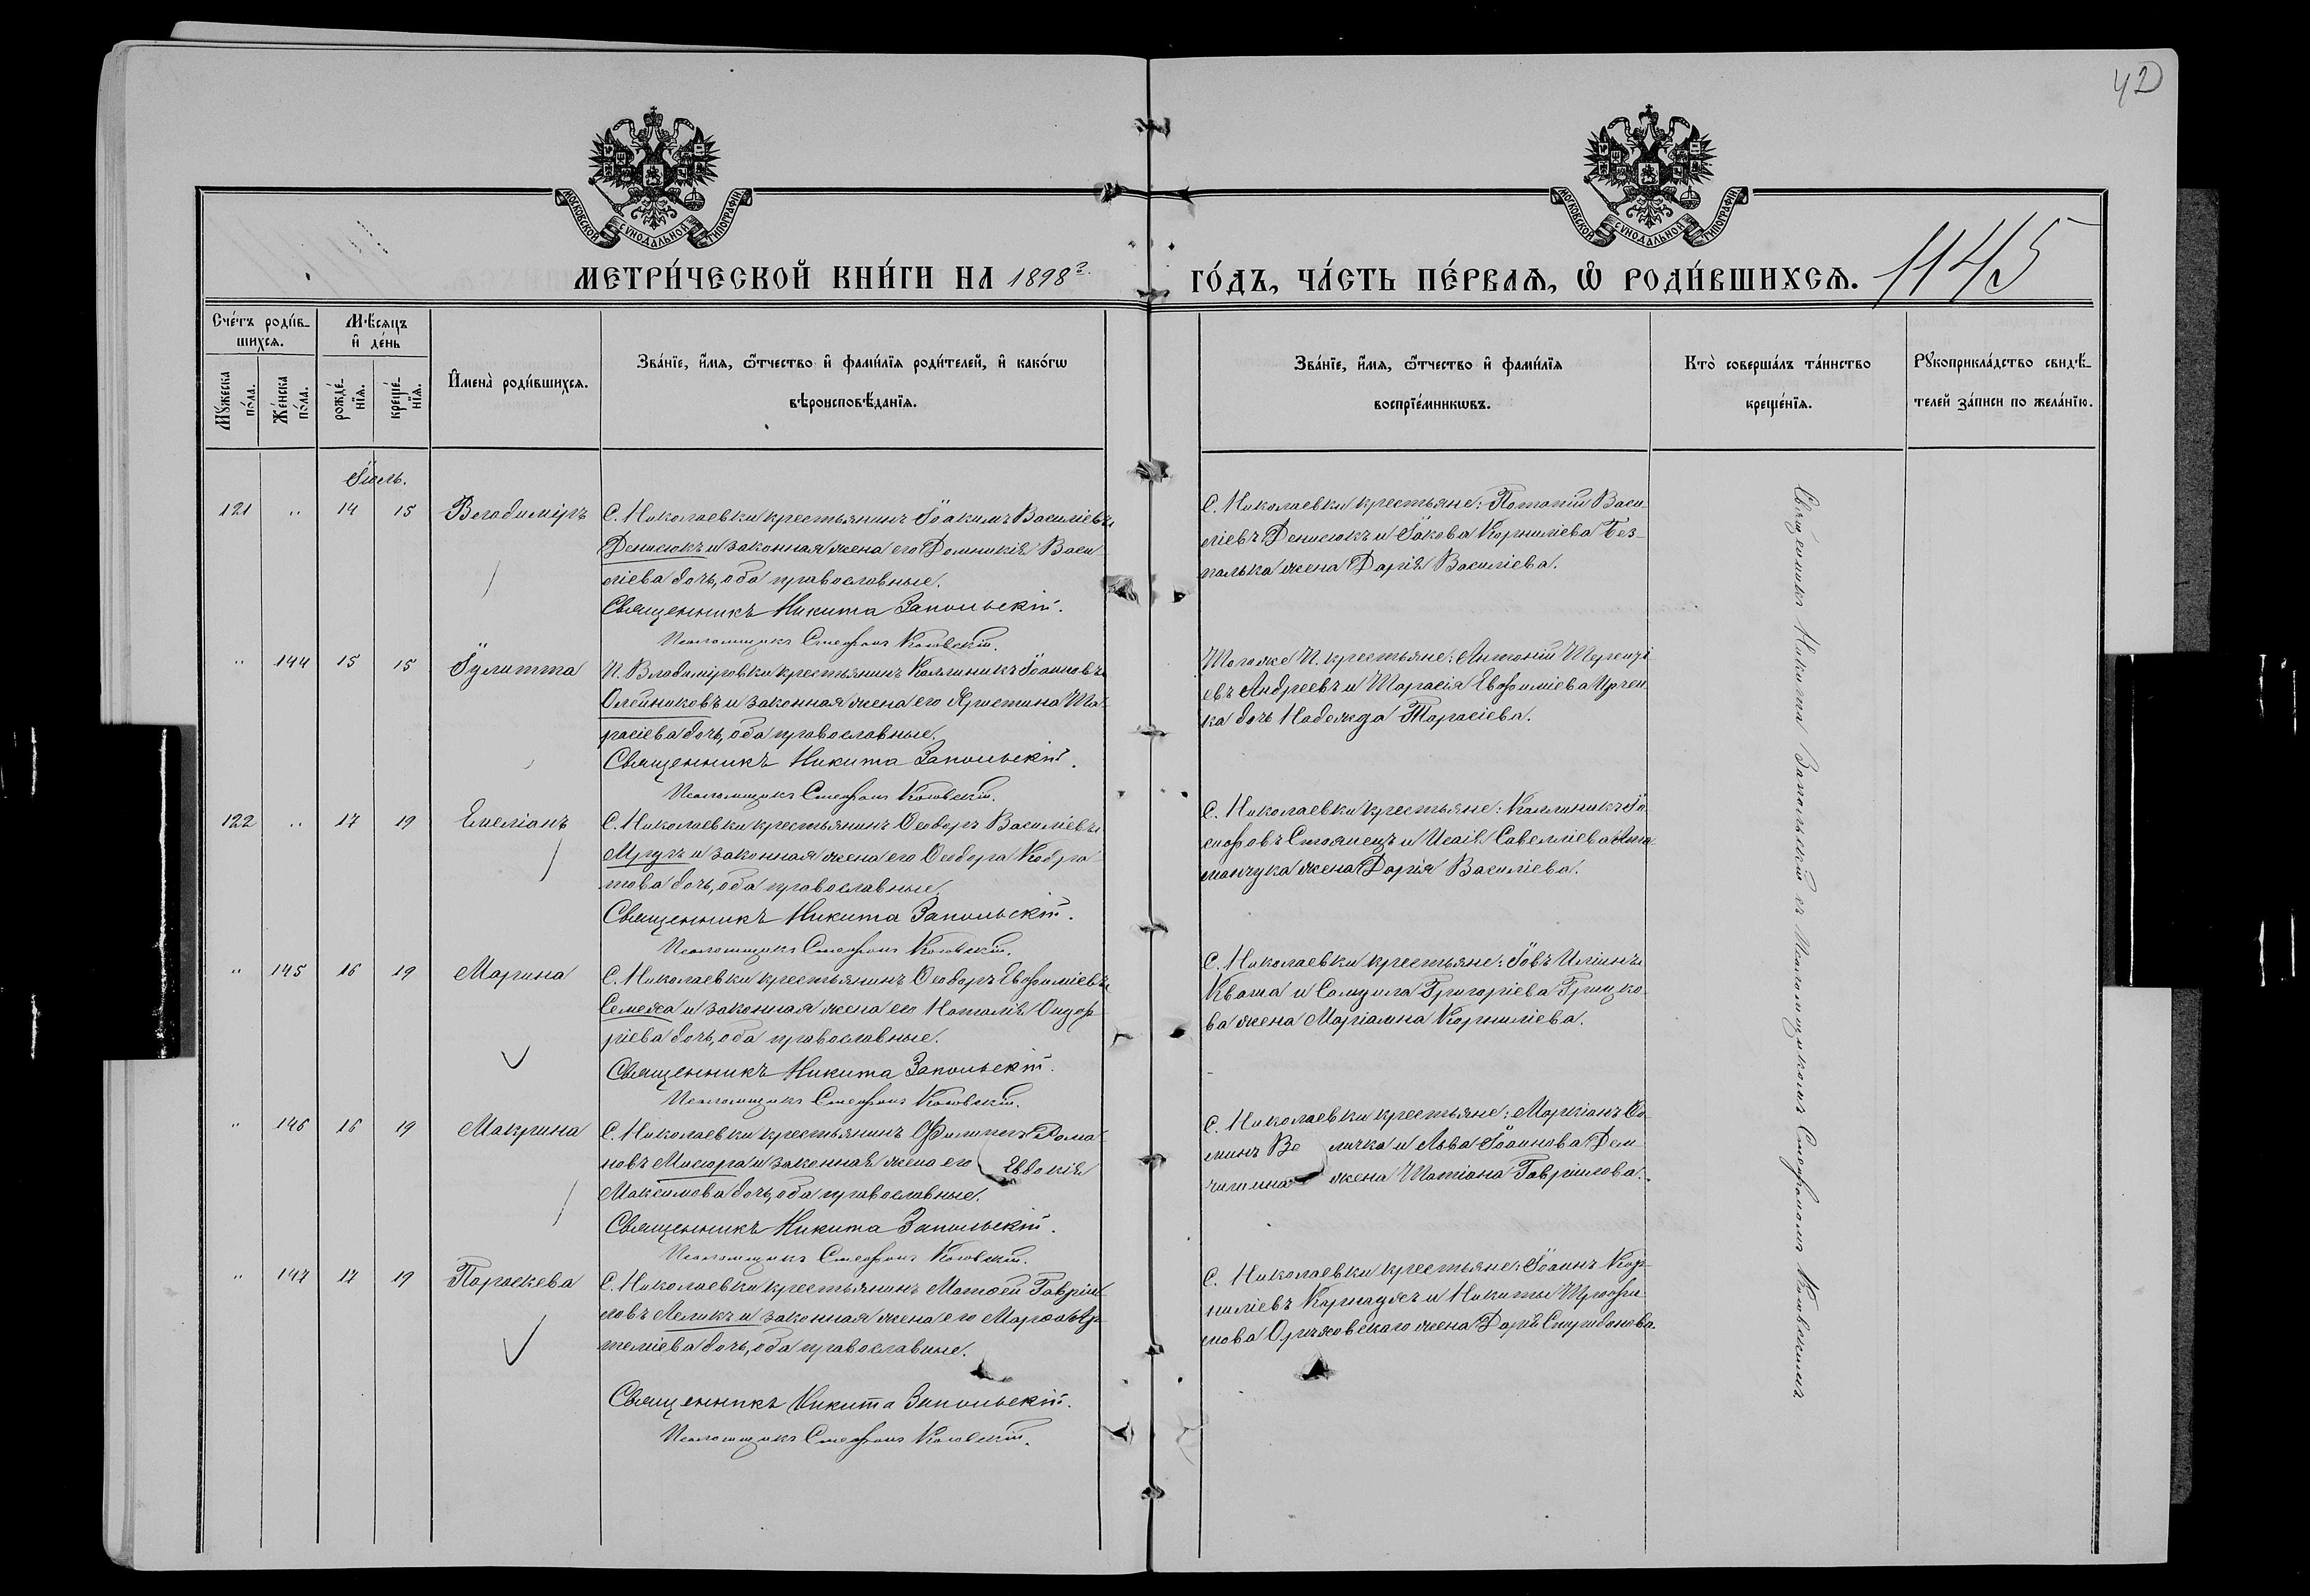 42
МОСКОВСКОЙ СѴНОДАЛЬНОЙ ТИПОГРАФІИ
МОСКОВСКОЙ СѴНОДАЛЬНОЙ ТИПОГРАФІИ
МЕТРИ́ЧЕСКОЙ КНИ́ГИ НА 1898 г.
ГО́ДЪ, ЧА́СТЬ ПЕ́РВАѦ, Ѡ РОДИ́ВШИХСѦ. 1145
Сче́тъ роди́в-
шихсѧ.
Мꙋжеска по́ла.
Же́нска по́ла.
Мѣ́сѧцъ и҆ де́нь
рожде́-нїѧ.
креще́-нїѧ.
И҆мена̀ роди́вшихсѧ.
Зва́нїе, и҆́мѧ, ѻ҆́тчество и҆ фами́лїѧ роди́телей, и҆ како́гѡ
вѣроисповѣ́данїѧ.
Зва́нїе, и҆́мѧ, ѻ҆́тчество и҆ фами́лїѧ
воспрїе́мникѡвъ.
Кто̀ соверша́лъ та́инство
креще́нїѧ.
Рꙋкоприкла́дство свидѣ́-
телей за́писи по жела́нїю.
Іюль.
121 " 14 15 Владиміръ
С. Николаевки крестьянинъ Іоакимъ Василіевъ
Денисюкъ и законная жена его Домникія Васи-
ліева дочь, оба православные.
Священникъ Никита Запольскій.
Псаломщикъ Стефанъ Коювскій.
С. Николаевки крестьяне: Потапій Васи-
ліевъ Денисюкъ и Іакова Корниліева Без-
палька жена Дарія Василіева.
" 144 15 15 Іулитта
П. Владиміровки крестьянинъ Каллиникъ Іоанновъ
Олейниковъ и законная жена его Христина Та-
расіева дочь, оба православные.
Священникъ Никита Запольскій.
Псаломщикъ Стефанъ Коювскій.
Того же П. крестьяне: Антоній Теренті-
евъ Андреевъ и Тарасія Евфиміева
дочь Надежда Тарасіева.
122 " 17 19 Емеліанъ
С. Николаевки крестьянинъ Ѳеодоръ Василіевъ
и законная жена его Ѳеодора Кодра-
това дочь, оба православные.
Священникъ Никита Запольскій.
Псаломщикъ Стефанъ Коювскій.
С. Николаевки крестьяне: Каллиникъ Іо-
сифовъ Стоянецъ и Исаія Савелліева Ата-
манчука жена Дарія Василіева.
" 145 16 19 Марина
С. Николаевки крестьянинъ Ѳеодоръ Евфиміевъ
Семежа и законная жена его Наталія
дочь, оба православные.
Священникъ Никита Запольскій.
Псаломщикъ Стефанъ Коювскій.
С. Николаевки крестьяне: Іовъ Иліинъ
Кваша и Самуила Григоріева Грицко-
ва жена Маріамна Корниліева.
" 146 16 19 Макрина
С. Николаевки крестьянинъ Филиппъ Рома-
новъ Мисюра и законная жена его Евдокія
Максимова дочь, оба православные.
Священникъ Никита Запольскій.
Псаломщикъ Стефанъ Коювскій.
С. Николаевки крестьяне: Маркіанъ Ѳо-
минъ Величка и Льва Іоаннова Дем-
жена Татіана Гавріилова.
" 147 17 19 Параскева
С. Николаевки крестьянинъ Матѳей Гаврiи-
ловъ Леликъ и законная жена его Марѳа Ар-
теміева дочь, оба православные.
Священникъ Никита Запольскій.
Псаломщикъ Стефанъ Коювскій.
С. Николаевки крестьяне: Іоаннъ Кор-
ниліевъ и Никиты Трофи-
мова Оржховскаго жена Дарія Спиридонова.
Священникъ Никита Запольскій съ Псаломщикомъ Стефаномъ Коювскимъ